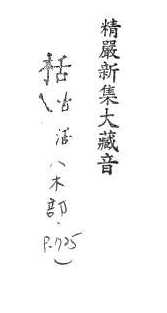 精嚴新集大藏音
括 古活 〈木部、
P.725〉